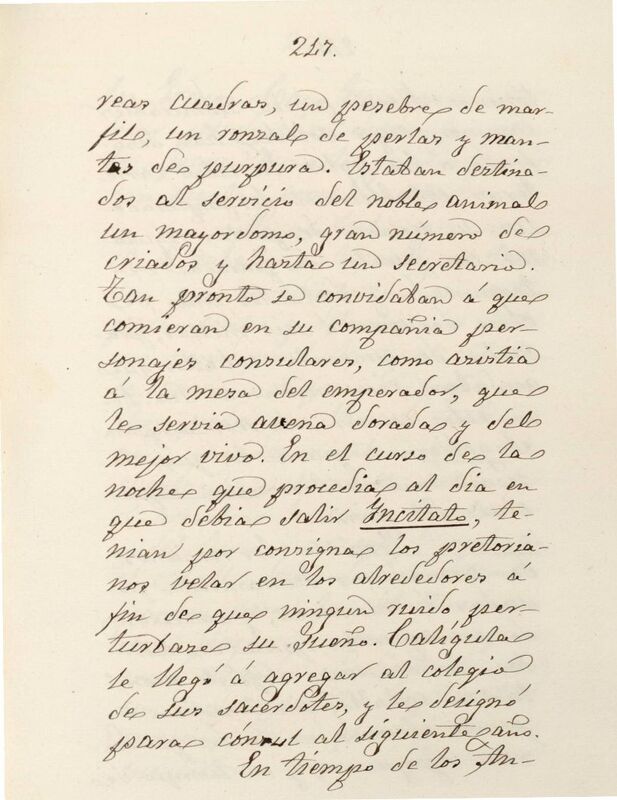 247.
reas cuadras, un pesebre de mar-
fil, un ronzal de perlas y man-
tas de purpura. Estaban destina-
dos al servicio del noble animal
un mayordomo, gran número de
criados y hasta un secretario.
Tan pronto se convidaban á que
comieran en su compañia per-
sonajes consulares, como asistia
á la mesa del emperador, que
le servia avena dorada y del
mejor vivo. En el curso de la
noche que procedia al dia en
que debia salir Incitato, te-
nian por consigna los pretoria-
nos velar en los alrededores á
fin de que ningun ruido per-
turbase su sueño. Calígula
le llegó á agregar al colegio
de sus sacerdotes, y le designó
para cónsul al siguiente año.
En tiempo de los An-